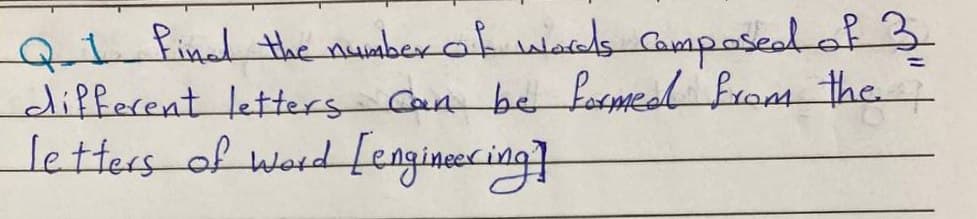 Q_1_ Find the number of words Composed of 3
different letters Can be formed from the
letters of word [engineering]